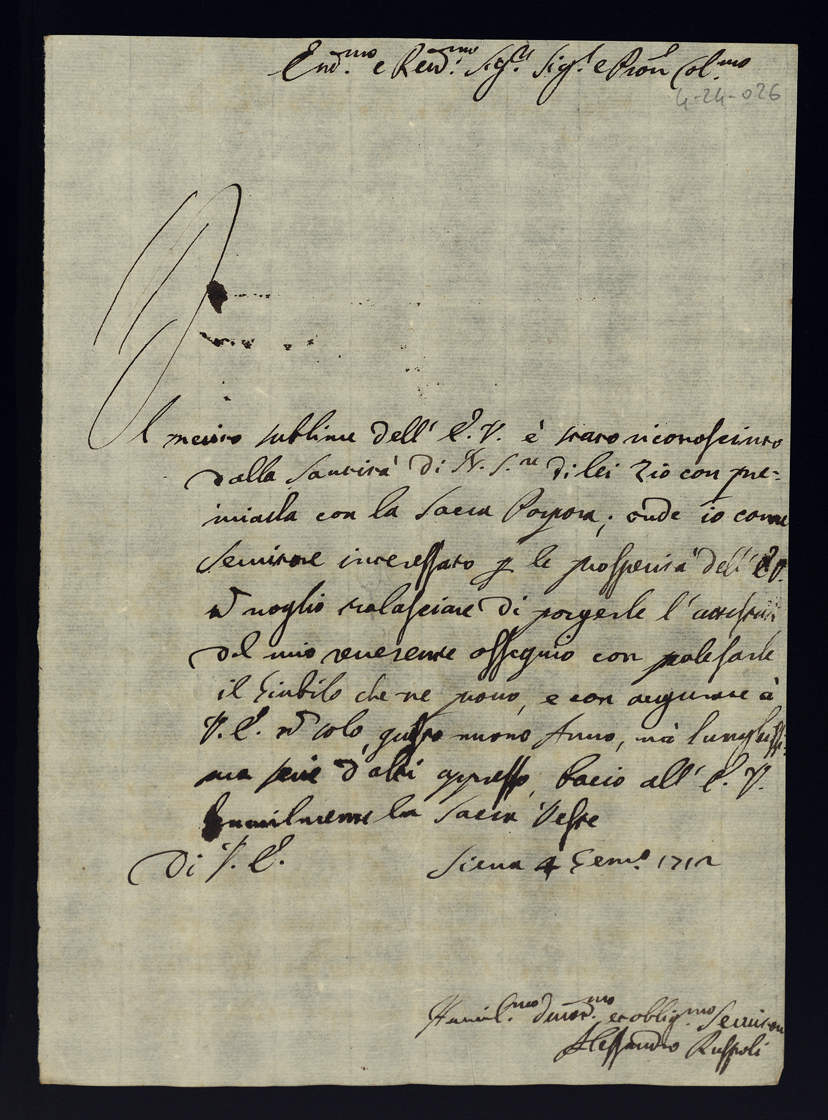 Em.mo e Rev.mo Sig.r Sig.r e Pron Col.mo
4-24-026
Il merito sublime dell' E. V. è stato riconosciuto
dalla Santità di N. S.re di lei Zio con pre=
miarla con la Sacra Porpora; onde io come
Servitore interessato p le prosperità dell' E. V.
ñ voglio tralasciare di porgerle l'
del mio reverente ossequio con palesarle
il Giubilo che ne provo, e con augurare à
V. E. ñ solo questo nuovo Anno, mà lunghissi=
ma serie d'altri appresso, bacio all' E. V.
humilmente la Sacra Veste
Di V. E. Siena 4 Gen.o 1712
Humil.mo Divot.mo et oblig.mo Servitore
Alessandro Ruspoli